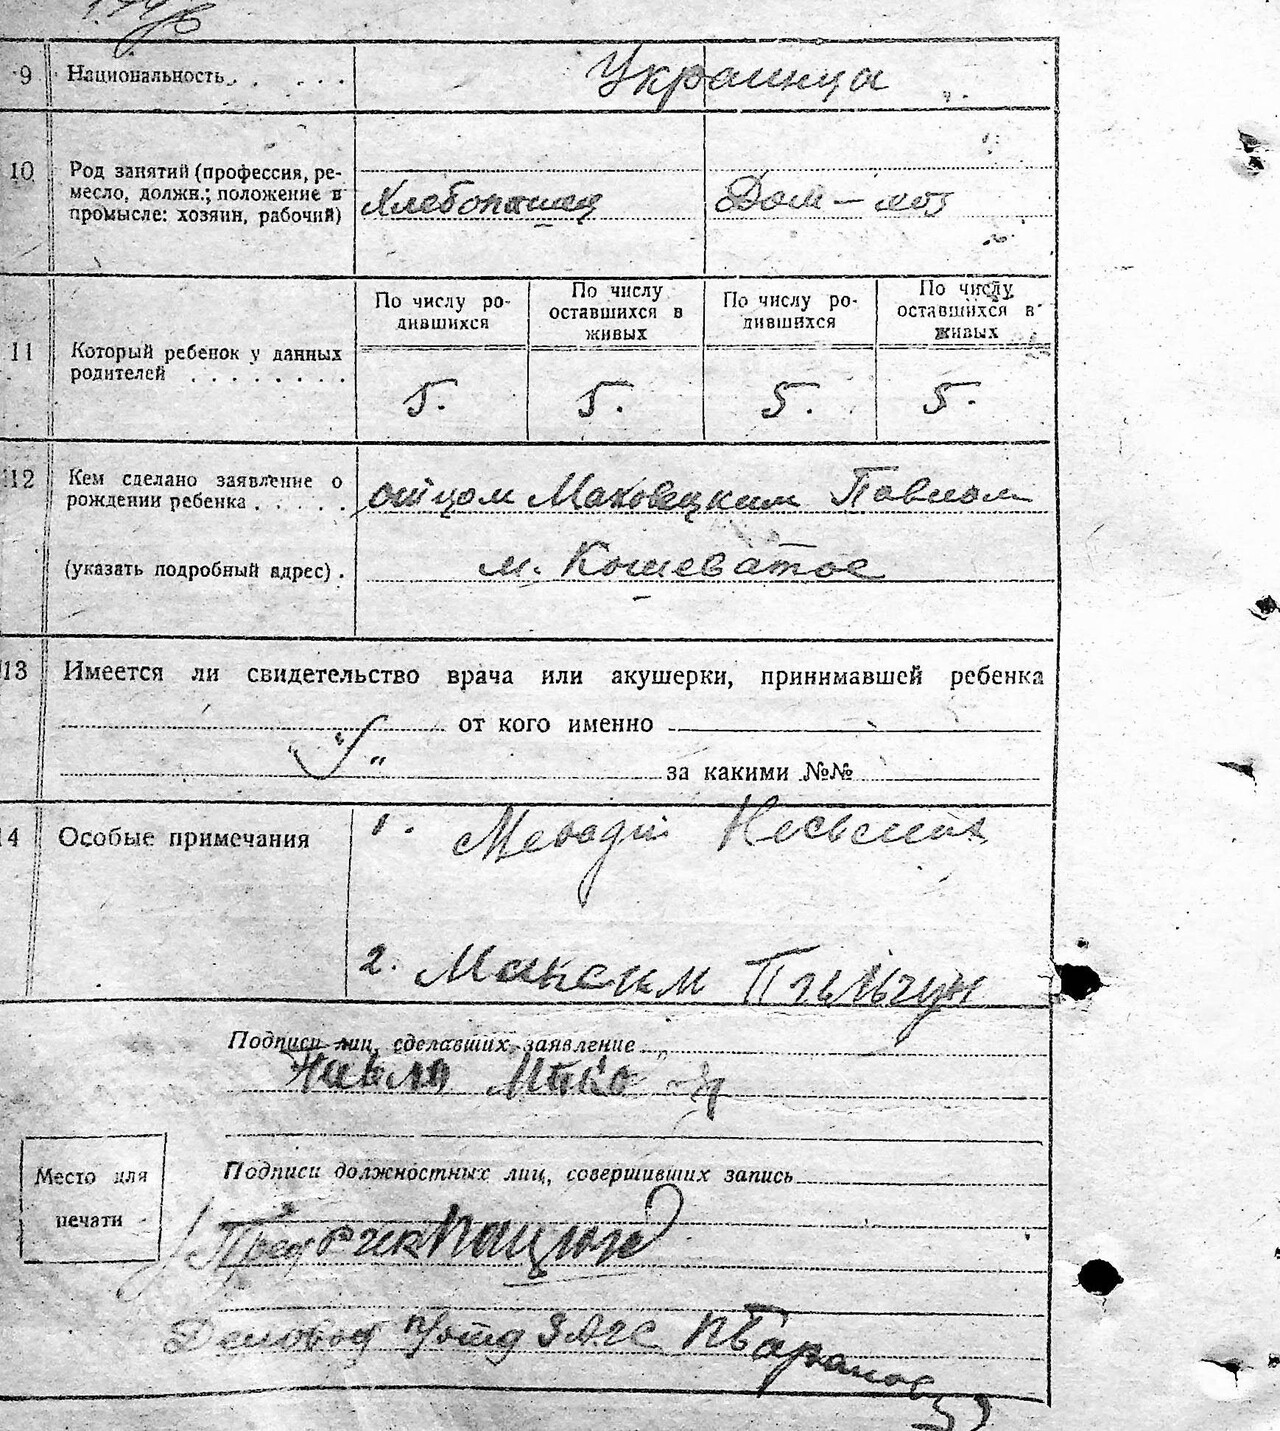 9 Национальность. . . . . Украинца
10 Род занятий (профессия, ре-
месло, должн.; положение в
промысле: хозяин, рабочий) Хлебопашец Дом – хоз
По числу ро-
дившихся
По числу
оставшихся в
живых
По числу ро-
дившихся
По числу
оставшихся в
живых
11 Который ребенок у данных
родителей . . . . . . . .
5. 5. 5. 5.
12 Кем сделано заявление о
рождении ребенка . . . . . отцом Маковецким Павлом
(указать подробный адрес) . м. Кошеватое
13 Имеется ли свидетельство врача или акушерки, принимавшей ребенка
от кого именно
за какими №№
14 Особые примечания 1.
2. Максим Пильгун
Подписи лиц, сделавших заявление
Подписи должностных лиц, совершивших запись
Место для
печати
Пред РИК
Деловод п/отд ЗАГС